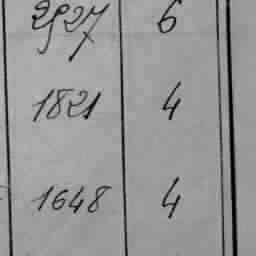 2927 6
1821 4
1648 4